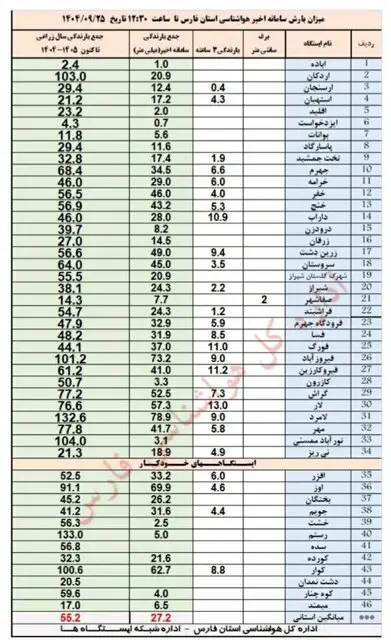 میزان بارش سامانه اخیر هواشناسی استان فارس تا ساعت ۱۲:۳۰ تاریخ ۱۴۰۴/۰۹/۲۵
ردیف نام ایستگاه برف سانتی متر بارندگی ۳ ساعته جمع بارندگی سامانه اخیر(میلی متر) جمع بارندگی سال زراعی تا کنون ۱۴۰۵-۱۴۰۴
1 اباده 1.0 2.4
2 اردکان 20.9 103.0
3 ارسنجان 0.4 12.4 29.4
4 استهبان 4.3 17.2 21.2
5 اقلید 2.0 23.2
6 ایزدخواست 0.7 4.3
7 بوانات 5.6 11.8
8 پاسارگاد 11.6 29.4
9 تخت جمشید 1.9 17.4 32.8
10 جهرم 6.6 34.5 68.4
11 خرامه 6.0 29.0 46.0
12 خفر 4.0 46.0 56.5
13 خنج 5.3 43.2 56.9
14 داراب 10.9 28.0 46.0
15 درودزن 8.2 39.7
16 زرقان 14.5 27.0
17 زرین دشت 9.4 49.0 56.6
18 سروستان 3.5 45.0 64.0
19 شهرک گلستان شیراز 20.9 55.5
20 شیراز 2.2 24.3 38.1
21 صفاشهر 2 7.7 14.3
22 فراشبند 1.2 24.3 54.7
23 فرودگاه جهرم 5.9 32.9 47.9
24 فسا 8.5 31.9 48.2
25 فورگ 11.0 37.0 44.1
26 فیروزآباد 9.0 73.2 101.2
27 قیروکارزین 11.2 41.0 61.2
28 کازرون 3.3 50.7
29 گراش 7.3 52.5 77.2
30 لار 13.0 57.3 76.6
31 لامرد 9.0 78.9 132.6
32 مهر 5.8 41.7 77.8
33 نورآباد ممسنی 3.1 104.0
34 نی ریز 4.9 18.9 21.3
ایستگاههای خودکار
35 افزر 6.0 33.2 52.5
36 اوز 4.6 69.9 91.1
37 بختگان 26.2 45.2
38 جویم 4.4 31.6 41.2
39 خشت 2.5 56.3
40 رستم 5.0 133.0
41 سده 56.8
42 کورده 21.6 32.3
43 کوار 8.8 62.7 100.6
44 دشت نمدان 20.5
45 کوه چنار 4.0 59.6
46 میمند 6.5 17.0
*** میانگین استانی 27.2 55.2
اداره کل هواشناسی استان فارس - اداره شبکه ایستگاه ها
اداره کل هواشناسی فارس